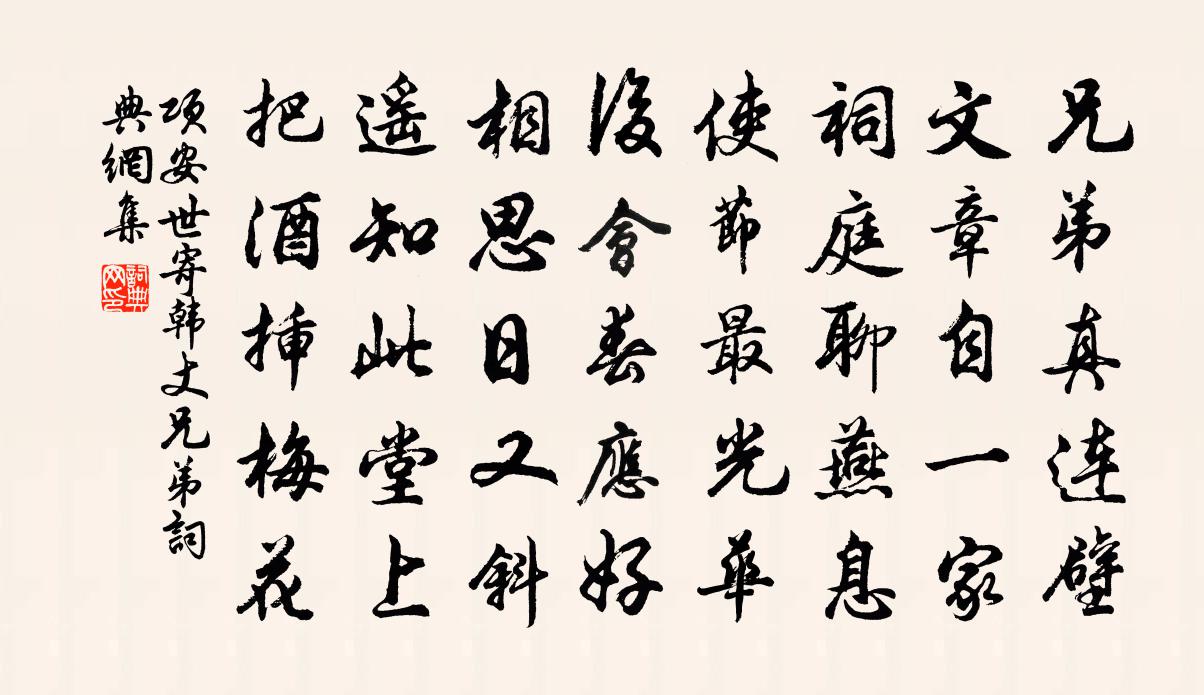 兄弟真连璧
文章自一家
祠庭聊燕息
使節最光華
後會春應好
相思日又斜
遥知此堂上
把酒挿梅花
項安世寄韩丈兄弟詞
典網集
詞典
网印